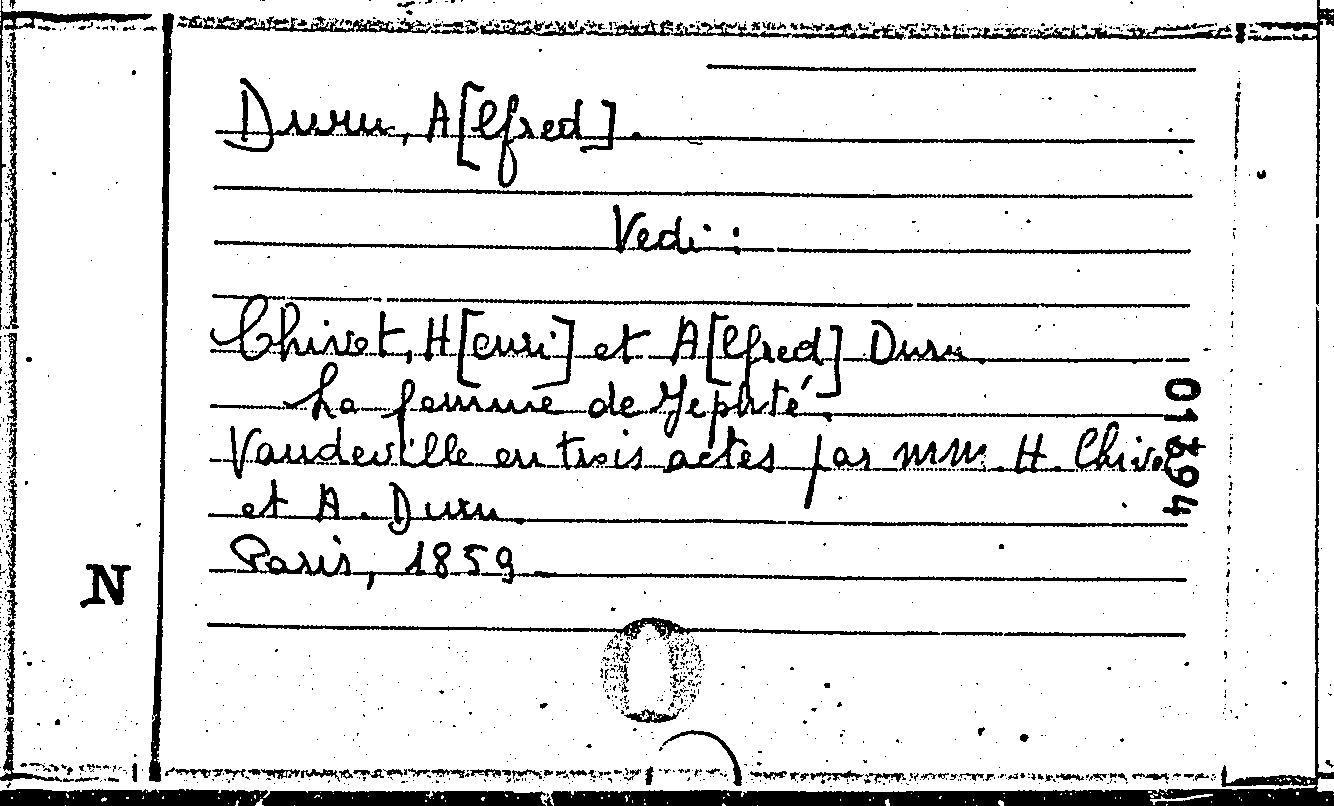 Duru, A[lfred].
Vedi:
Chivot, H[enri] et A[lfred] Duru.
La femme de Jephté.
Vaudeville en trois actes par mm. H. Chivo
et A. Duru.
Paris, 1859.
N
01394